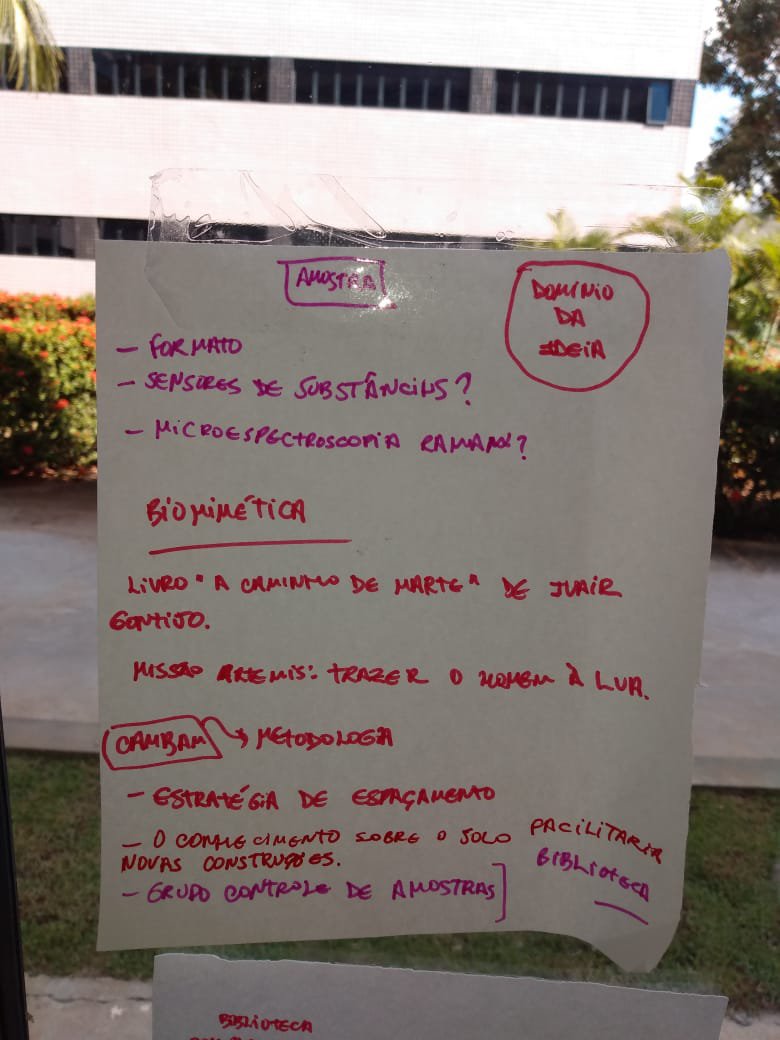 AMOSTRA
DOMÍNIO
DA
IDEIA
- FORMATO
- SENSORES DE SUBSTÂNCIAS?
- MICROESPECTROSCOPIA RAMAN?
BIOMIMÉTICA
LIVRO "A CAMINHO DE MARTE" DE IVAIR
GONTIJO.
MISSÃO ARTEMIS: TRAZER O HOMEM À LUA.
CAMBAM → METODOLOGIA
- ESTRATÉGIA DE ESPAÇAMENTO
- O CONHECIMENTO SOBRE O SOLO FACILITARIA
NOVAS CONSTRUÇÕES.
- GRUPO CONTROLE DE AMOSTRAS] BIBLIOTECA
BIBLIOTECA